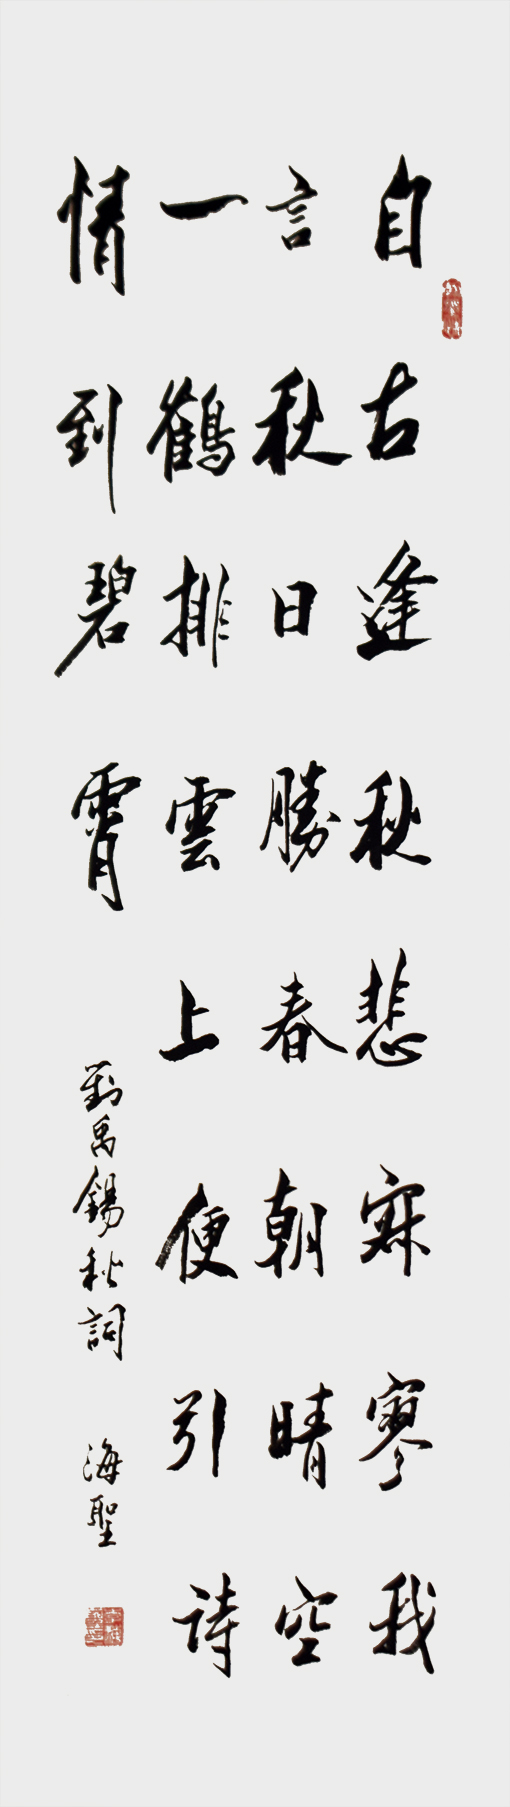 自古逢秋悲寂寥我
言秋日勝春朝晴空
一鶴排雲上便引詩
情到碧霄
劉禹錫秋詞
海聖